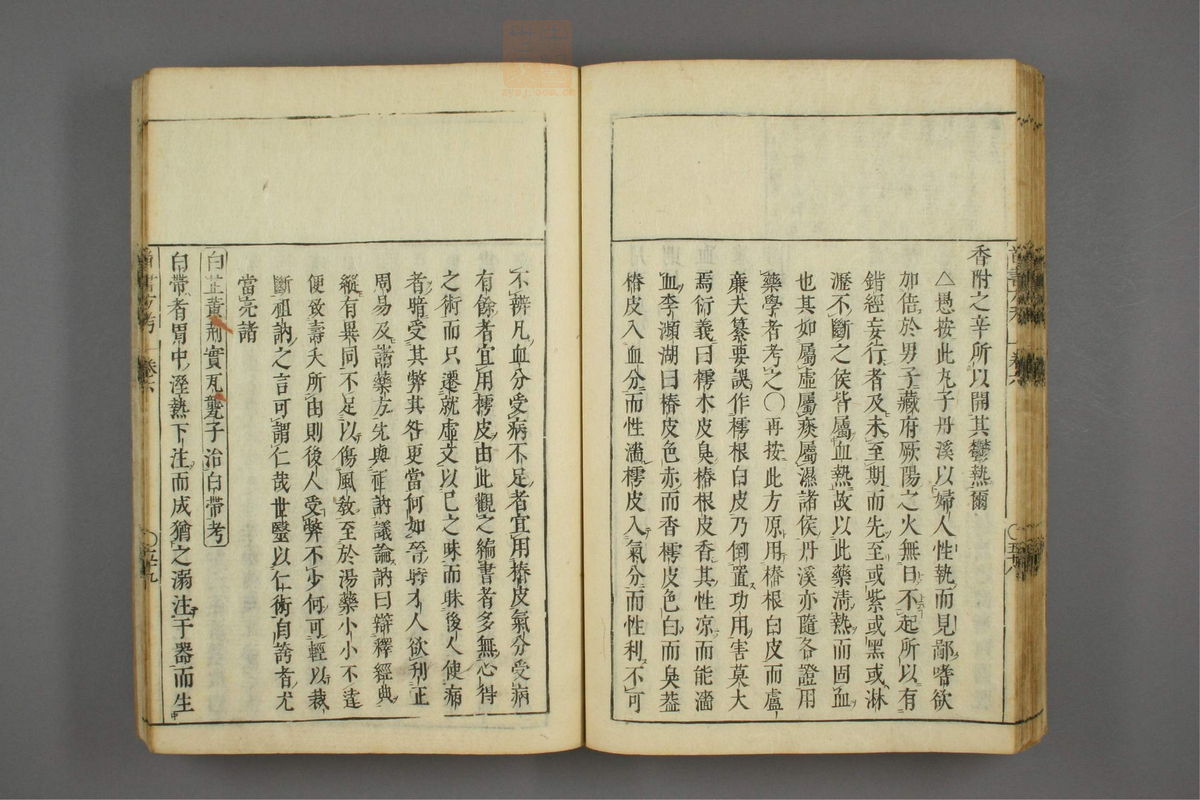 香附之辛所以開其鬱熱爾
△愚按此丸子丹溪以婦人性執而見鄙嗜欲
加倍於男子藏府厥陽之火無日不起所以有
錯經妄行者及未至期而先至或紫或黑或淋
瀝不斷之侯皆屬血熱故以此藥淸熱而固血
也其如屬虛屬痰屬濕諸侯丹溪亦隨各證用
藥學者考之〇再按此方原用椿根白皮而盧
廉夫纂要誤作樗根白皮乃倒置功用害莫大
焉衍義曰樗木皮臭椿根皮香其性凉而能濇
血李瀕湖曰椿皮色赤而香樗皮色白而臭蓋
椿皮入血分而性濇樗皮入氣分而性利不可
不辨凡血分受病不足者宜用椿皮氣分受病
有餘者宜用樗皮由此觀之編書者多無心得
之術而只遷就虛文以已之昧而昧後人使病
者暗受其弊其咎更當何如
周易及諸藥方先與祖訥議論訥曰辯釋經典
縱有異同不足以傷風敎至於湯藥小小不達
便致壽夭所由則後人受弊不少何可輕以裁
斷祖訥之言可謂仁哉世毉以仁術自誇者尤
當亮諸
白芷黃荊實瓦甃子治白帶考
白帶者胃中溼熱下注而成猶之溺注于器而生
方考 卷六 〇五十九